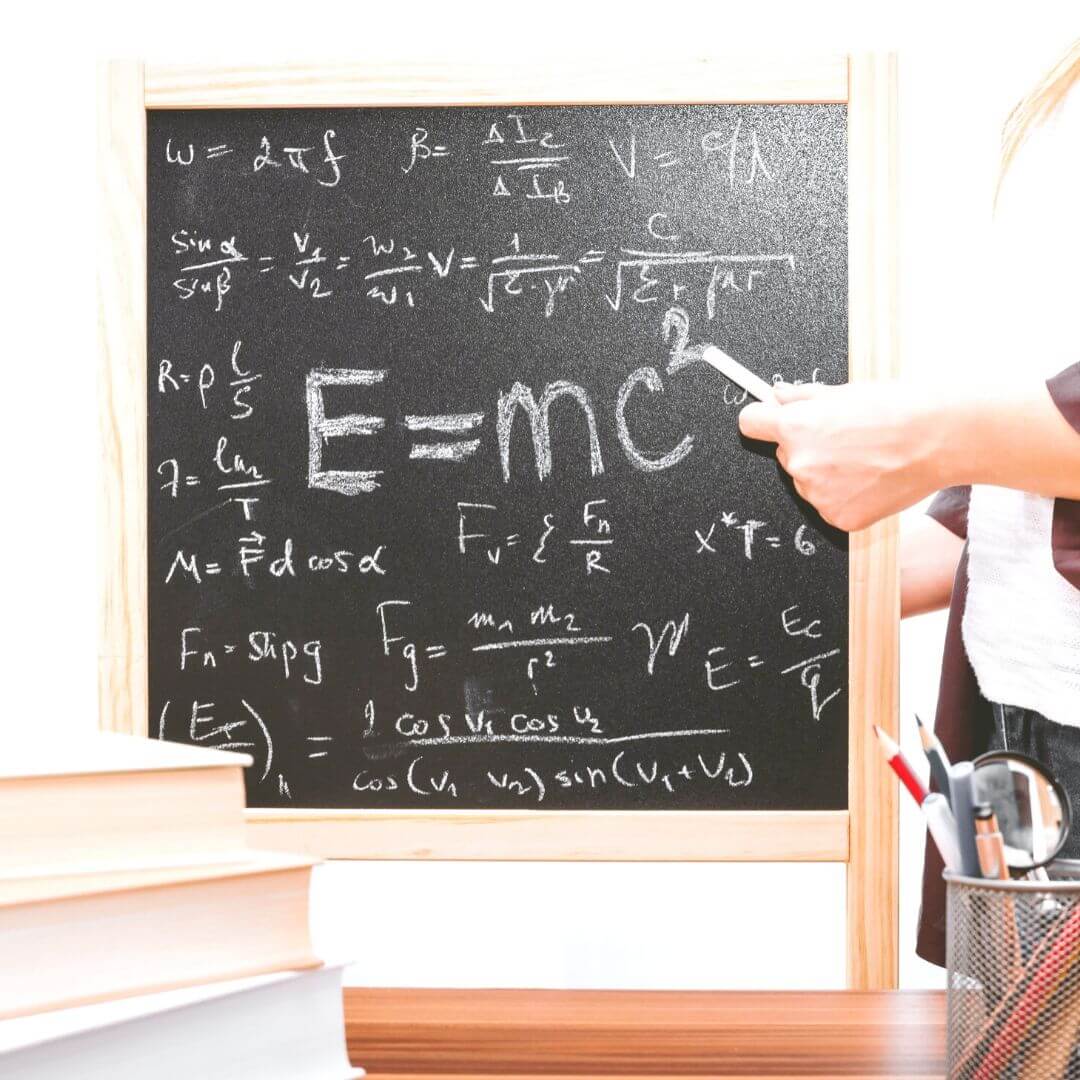 ω = 2πf β = ΔI₂/ΔI_B V = c/λ
sin α/sin β = V₁/V₂ = w₂/w₁ V = 1/√(ε·μ) = C/√(ε r μr)
R = ρ l/S
E = mc²
λ = ln₂/T
F_v = ξ F_n/R x*T = 6
M = F⃗ d cos α
F_n = Slipg F_g = m₁ m₂/r² E = E_c/q
= 2 cos v₁ cos v₂/cos(v₁ v₂) sin(v₁+v₂)